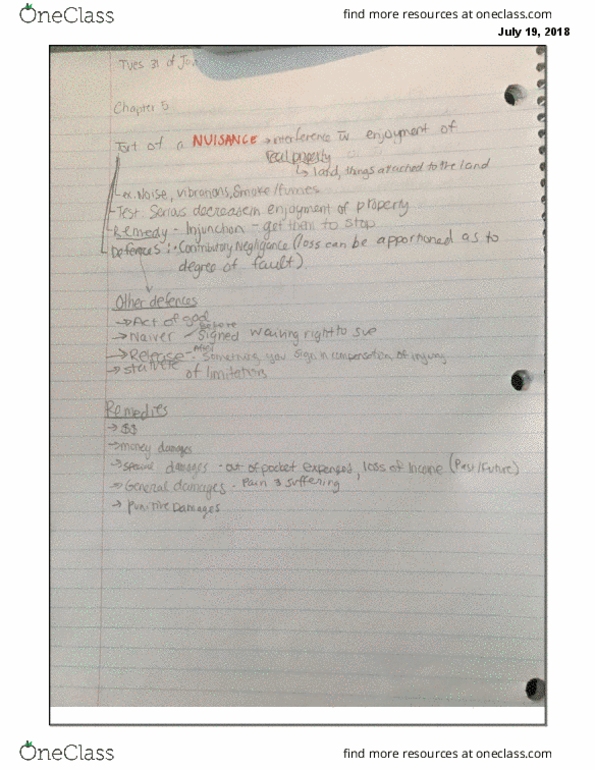 OneClass
find more resources at oneclass.com
July 19, 2018
Tues 31 of Jan
Chapter 5
Tort of a NUISANCE → interference in enjoyment of
real property
↳ land, things attached to the land
ex. Noise, vibrations, Smoke/fumes
Test. Serious decrease in enjoyment of property
Remedy - Injunction - get them to stop
Defences: • Contributory Negligence (loss can be apportioned as to
degree of fault).
Other defences
→ Act of god
before
→ Waiver - Signed waiving right to sue
→ Release - Something you sign in compensation of injury
→ statute of limitation
Remedies
→ $$
→ money damages
→ special damages - out of pocket expenses, loss of income (Past/Future)
→ General damages - Pain & suffering
→ Punitive Damages
OneClass
find more resources at oneclass.com